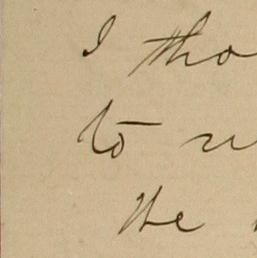 I tho
to
the